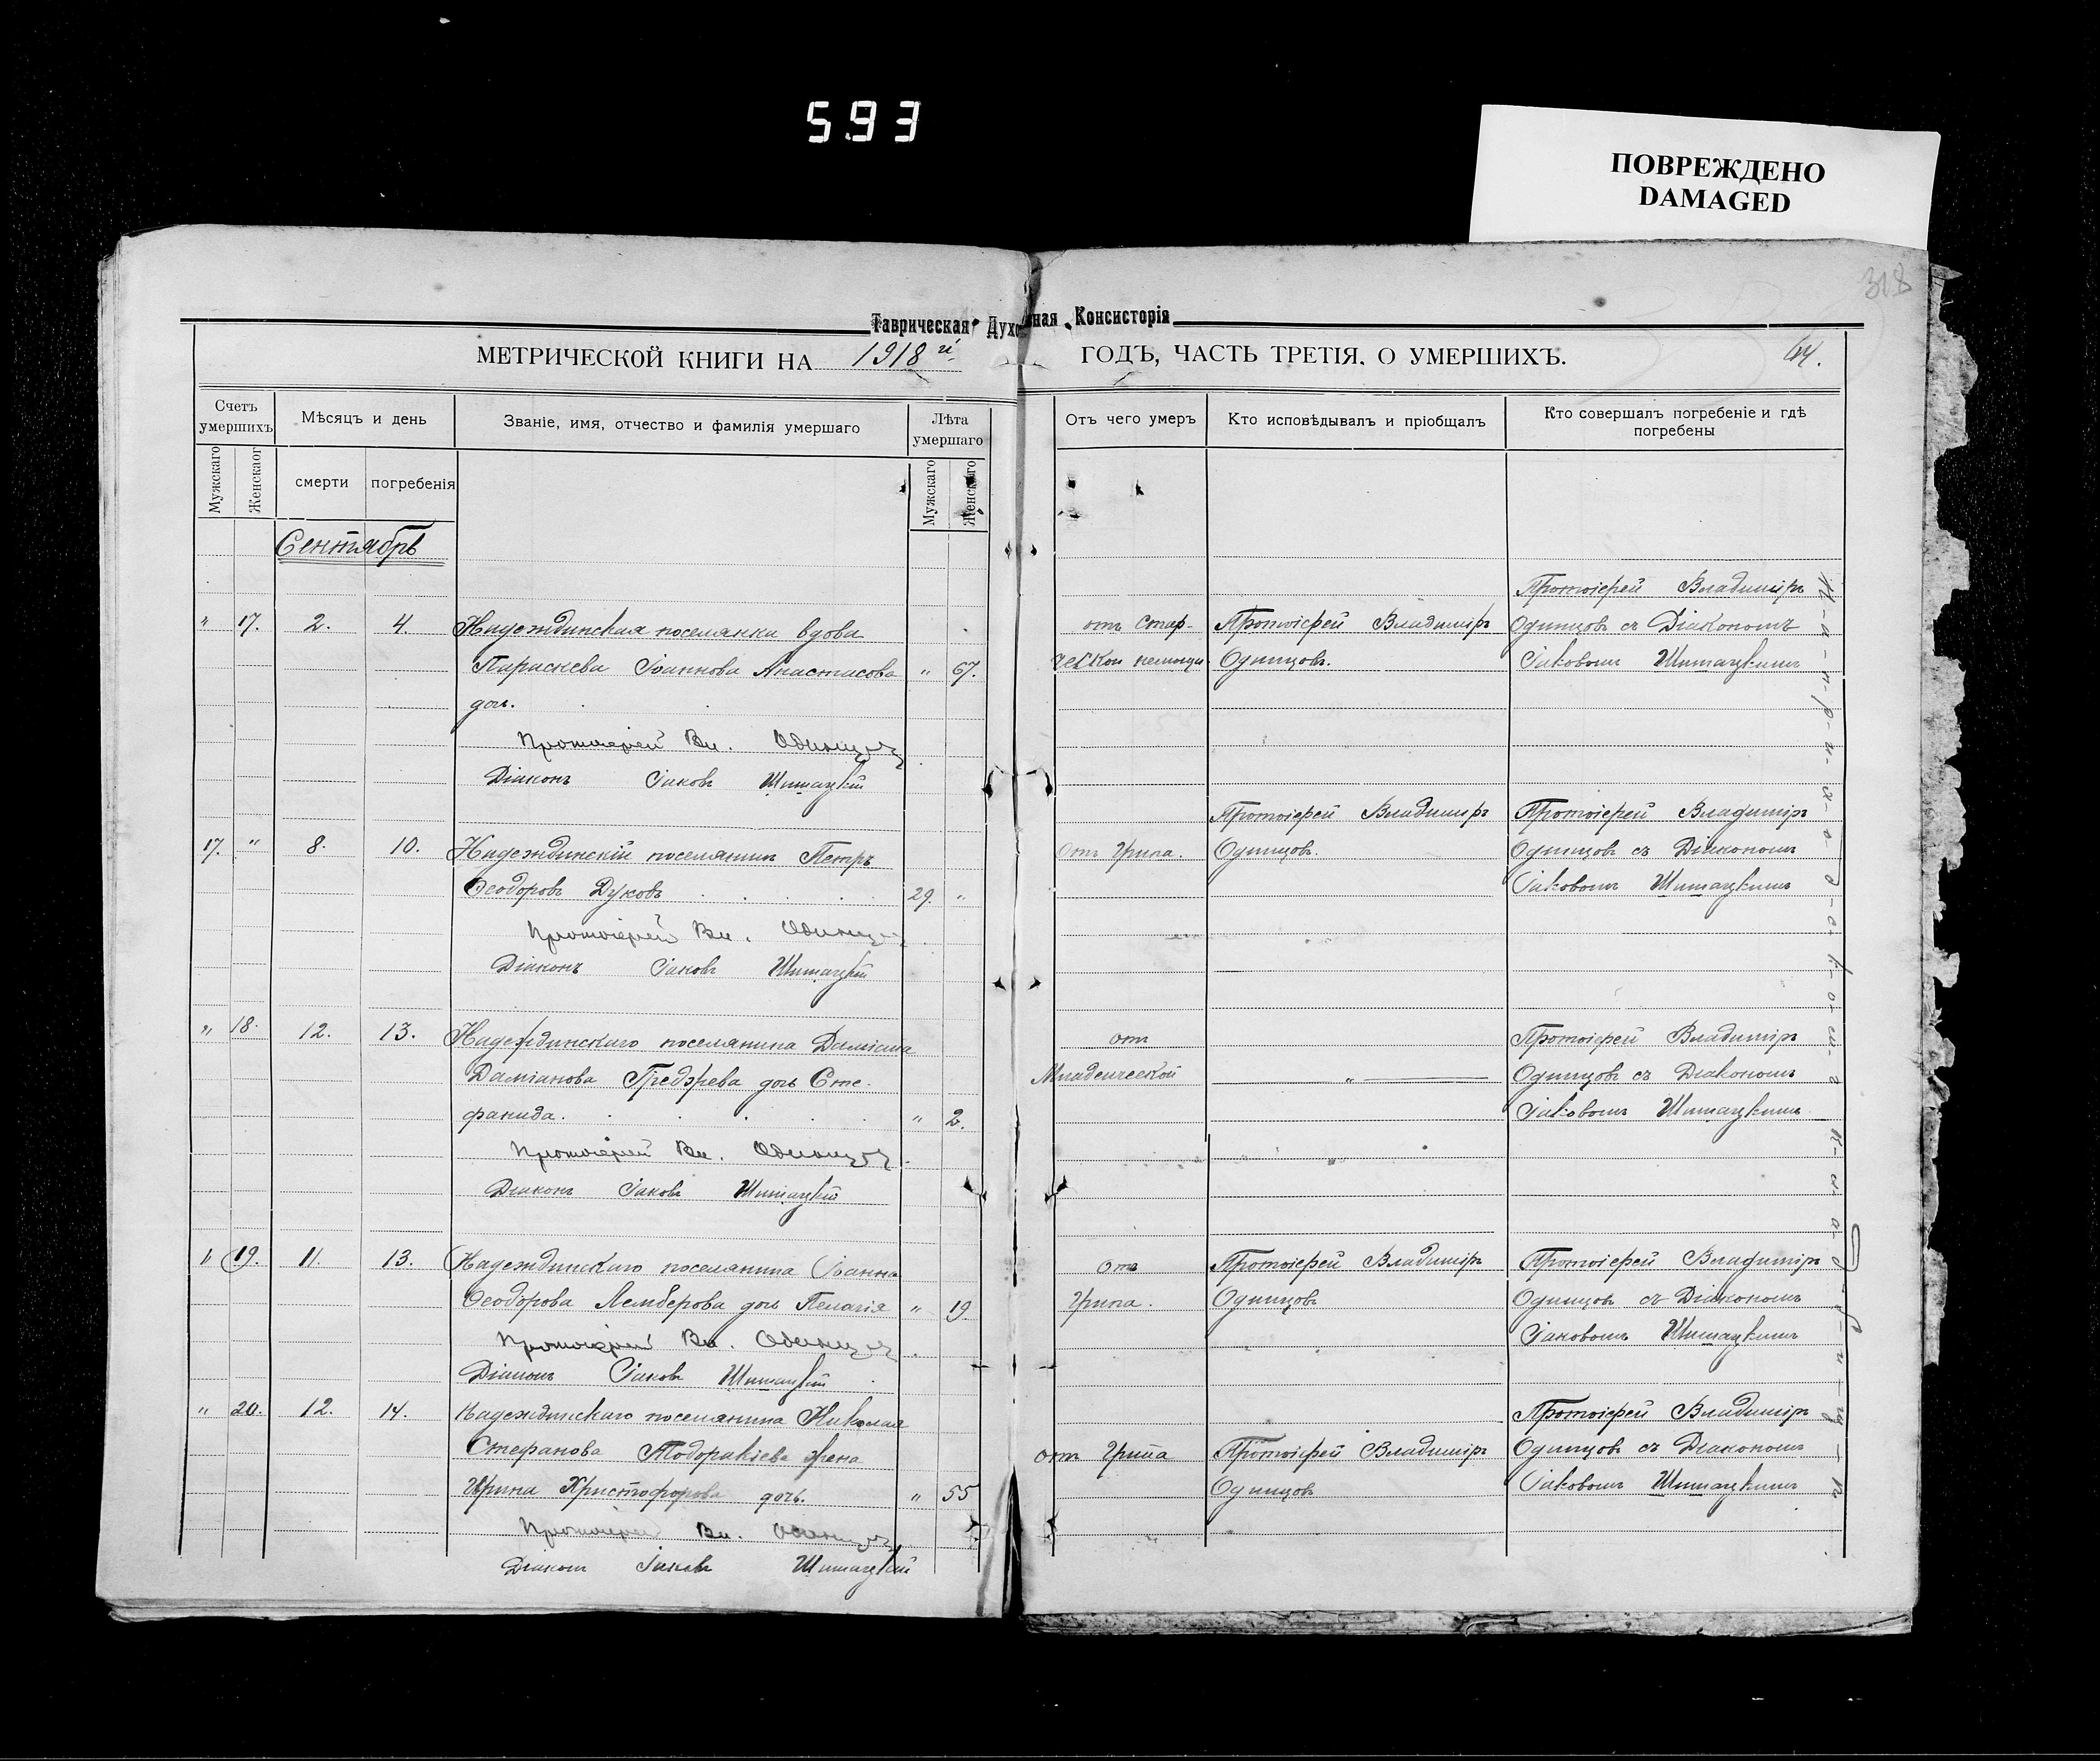 593
ПОВРЕЖДЕНО
DAMAGED
318
Таврическая Духовная Консисторія
МЕТРИЧЕСКОЙ КНИГИ НА 1918 й
ГОДЪ, ЧАСТЬ ТРЕТІЯ, О УМЕРШИХЪ.
Счетъ умершихъ
Мѣсяцъ и день
Званіе, имя, отчество и фамилія умершаго
Лѣта умершаго
Отъ чего умеръ
Кто исповѣдывалъ и пріобщалъ
Кто совершалъ погребеніе и гдѣ погребены
Мужскаго
Женскаог
смерти
погребенія
Мужскаго
Женскаго
Сентябрь
" 17. 2. 4. Надеждинская поселянка вдова
Параскева Іоаннова Анастасова " 67.
дочь.
Протоіерей Вл. Одинцовъ
Діаконъ Іаковъ Шишацкій
отъ стар-
ческой немощи.
Протоіерей Владиміръ
Одинцовъ.
Протоіерей Владиміръ
Одинцовъ съ Діакономъ
Іаковомъ Шишацкимъ
17. " 8. 10. Надеждинскій поселянинъ Петръ
Ѳеодоровъ Дуковъ 29. "
Протоіерей Вл. Одинцовъ
Діаконъ Іаковъ Шишацкій
отъ Грипа.
Протоіерей Владиміръ
Одинцовъ.
Протоіерей Владиміръ
Одинцовъ съ Діакономъ
Іаковомъ Шишацкимъ
" 18. 12. 13. Надеждинскаго поселянина Даміана
Даміанова дочь Сте-
фанида. " 2.
Протоіерей Вл. Одинцовъ
Діаконъ Іаковъ Шишацкій
отъ
Младенческой
"
Протоіерей Владиміръ
Одинцовъ съ Діакономъ
Іаковомъ Шишацкимъ
" 19. 11. 13. Надеждинскаго поселянина Іоанна
Ѳеодорова Лемберова дочь Пелагія " 19.
Протоіерей Вл. Одинцовъ
Діаконъ Іаковъ Шишацкій
отъ
Грипа.
Протоіерей Владиміръ
Одинцовъ
Протоіерей Владиміръ
Одинцовъ съ Діакономъ
Іаковомъ Шишацкимъ
" 20. 12. 14. Надеждинскаго поселянина Николая
Стефанова Тодоракіева жена
Ирина Христофорова дочь. " 55
Протоіерей Вл. Одинцовъ
Діаконъ Іаковъ Шишацкій
отъ Грипа
Протоіерей Владиміръ
Одинцовъ
Протоіерей Владиміръ
Одинцовъ съ Діакономъ
Іаковомъ Шишацкимъ